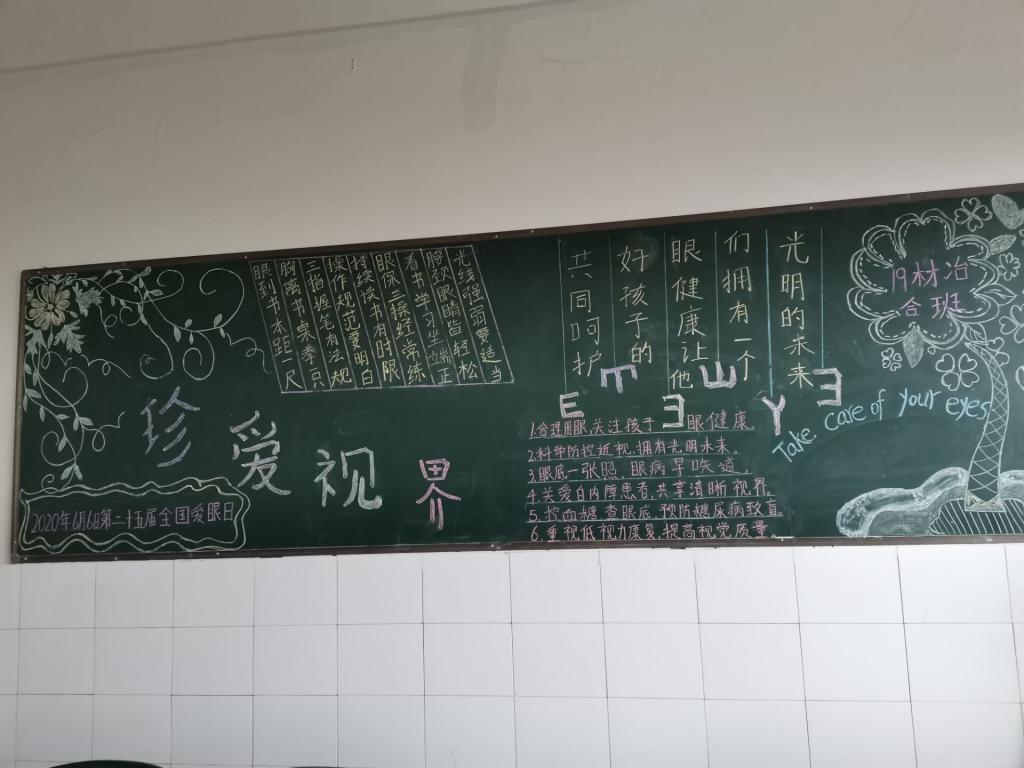 珍爱视界
2020年6月6日第二十五届全国爱眼日
眼到书本距一尺
胸离书桌拳一只
三指握笔有法规
操作规范要明白
持续读书有时限
眼保三操经常练
看书学习坐端正
光线强弱要适当
共同呵护
好孩子的
眼健康让他
们拥有一个
光明的未来
E
1.合理用眼,关注孩子眼健康.
2.科学防控近视,拥有光明未来.
3.眼底一张照,眼病早
4.关爱白内障患者,共享清晰视界.
5.控血糖,查眼底,预防糖尿病致盲
6.重视低视力康复,提高视觉质量.
Take care of your eyes
19材冶
合班